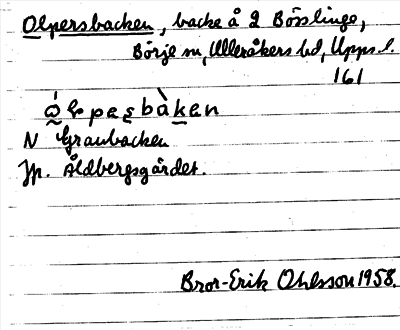 Olpersbacken, backe å 2 Bösslinge,
Börje sn, Ulleråkers hd, Upps. l.
161
N Granbacken
Jfr. Åldbergsgärdet.
Bror-Erik Ohlsson 1958.